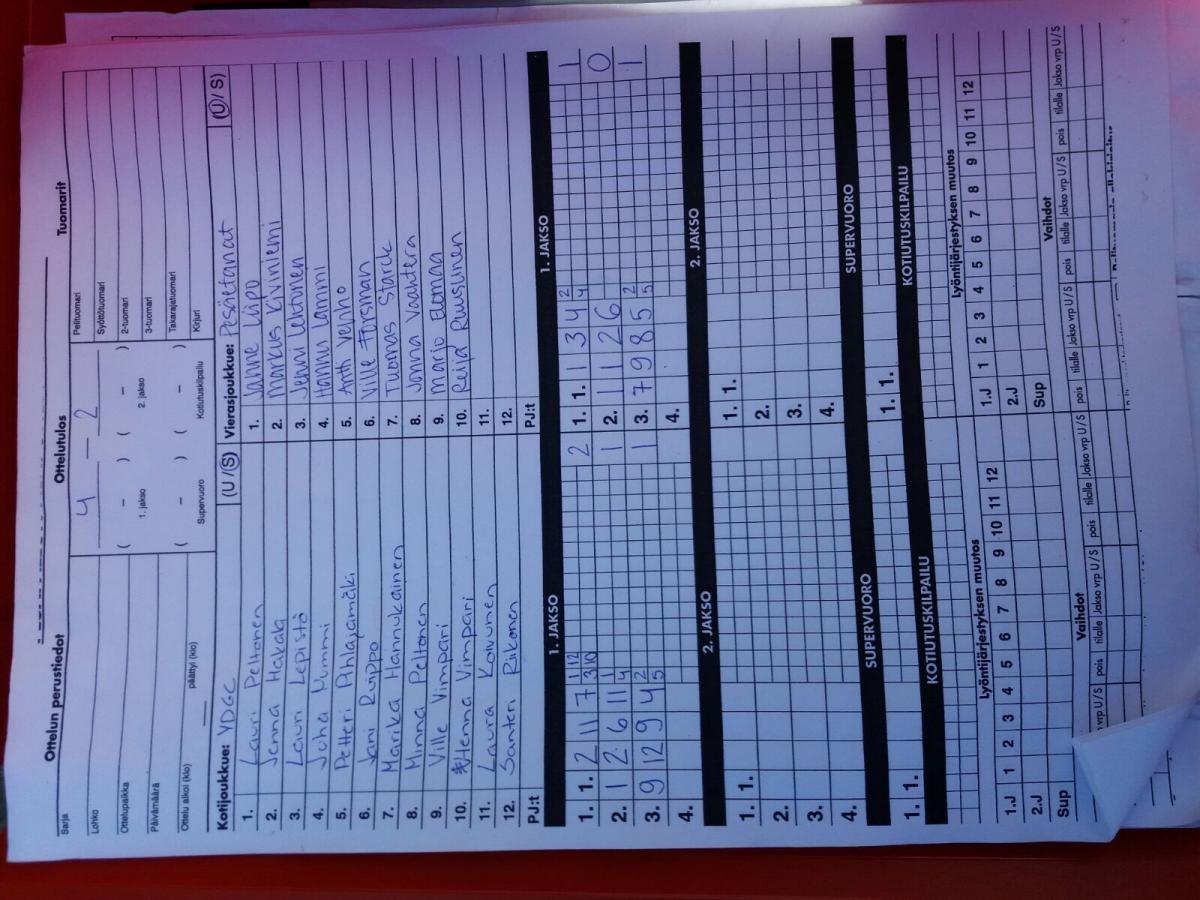 Ottelun perustiedot
Ottelutulos
Tuomarit
Sarja
Lohko
Ottelupaikka
Päivämäärä
Ottelu alkoi (klo)
päättyi (klo)
4 – 2
( – ) ( – )
1. jakso 2. jakso
( – ) ( – )
Supervuoro Kotiutuskilpailu
Pelituomari
Syöttötuomari
2-tuomari
3-tuomari
Takarajatuomari
Kirjuri
Kotijoukkue: VDGC (U/S)
1. Lauri Peltonen
2. Jenna Hakala
3. Lauri Lepistö
4. Juha Nummi
5. Petteri Pihlajamäki
6. Jani Ruippo
7. Marika Hannukainen
8. Minna Peltonen
9. Ville Vimpari
10. Henna Vimpari
11. Laura Koivunen
12. Santeri Riikonen
PJ:t
Vierasjoukkue: Pesäetanat (U/S)
1. Janne Liipo
2. Markus Kiviniemi
3. Jenni Lehtinen
4. Hannu Lammi
5. Antti Venho
6. Ville Forsman
7. Tuomas Starck
8. Jonna Vaahtera
9. Marjo Elomaa
10. Reija Ruusunen
11.
12.
PJ:t
1. JAKSO
1. 1. 2 11 7 3 12 10 2
2. 1 2 6 11 4 1 1
3. 9 12 9 4 5 2 1
4.
1. JAKSO
1. 1. 1 3 4 4 2 1
2. 1 1 2 6 0
3. 7 9 8 5 5 2 1
4.
2. JAKSO
1. 1.
2.
3.
4.
2. JAKSO
1. 1.
2.
3.
4.
SUPERVUORO
1. 1.
SUPERVUORO
1. 1.
KOTIUTUSKILPAILU
KOTIUTUSKILPAILU
Lyöntijärjestyksen muutos
1.J 1 2 3 4 5 6 7 8 9 10 11 12
2.J
Sup
Lyöntijärjestyksen muutos
1.J 1 2 3 4 5 6 7 8 9 10 11 12
2.J
Sup
Vaihdot
vrp U/S pois tilalle Jakso vrp U/S pois tilalle Jakso vrp U/S
Vaihdot
pois tilalle Jakso vrp U/S pois tilalle Jakso vrp U/S pois tilalle Jakso vrp U/S